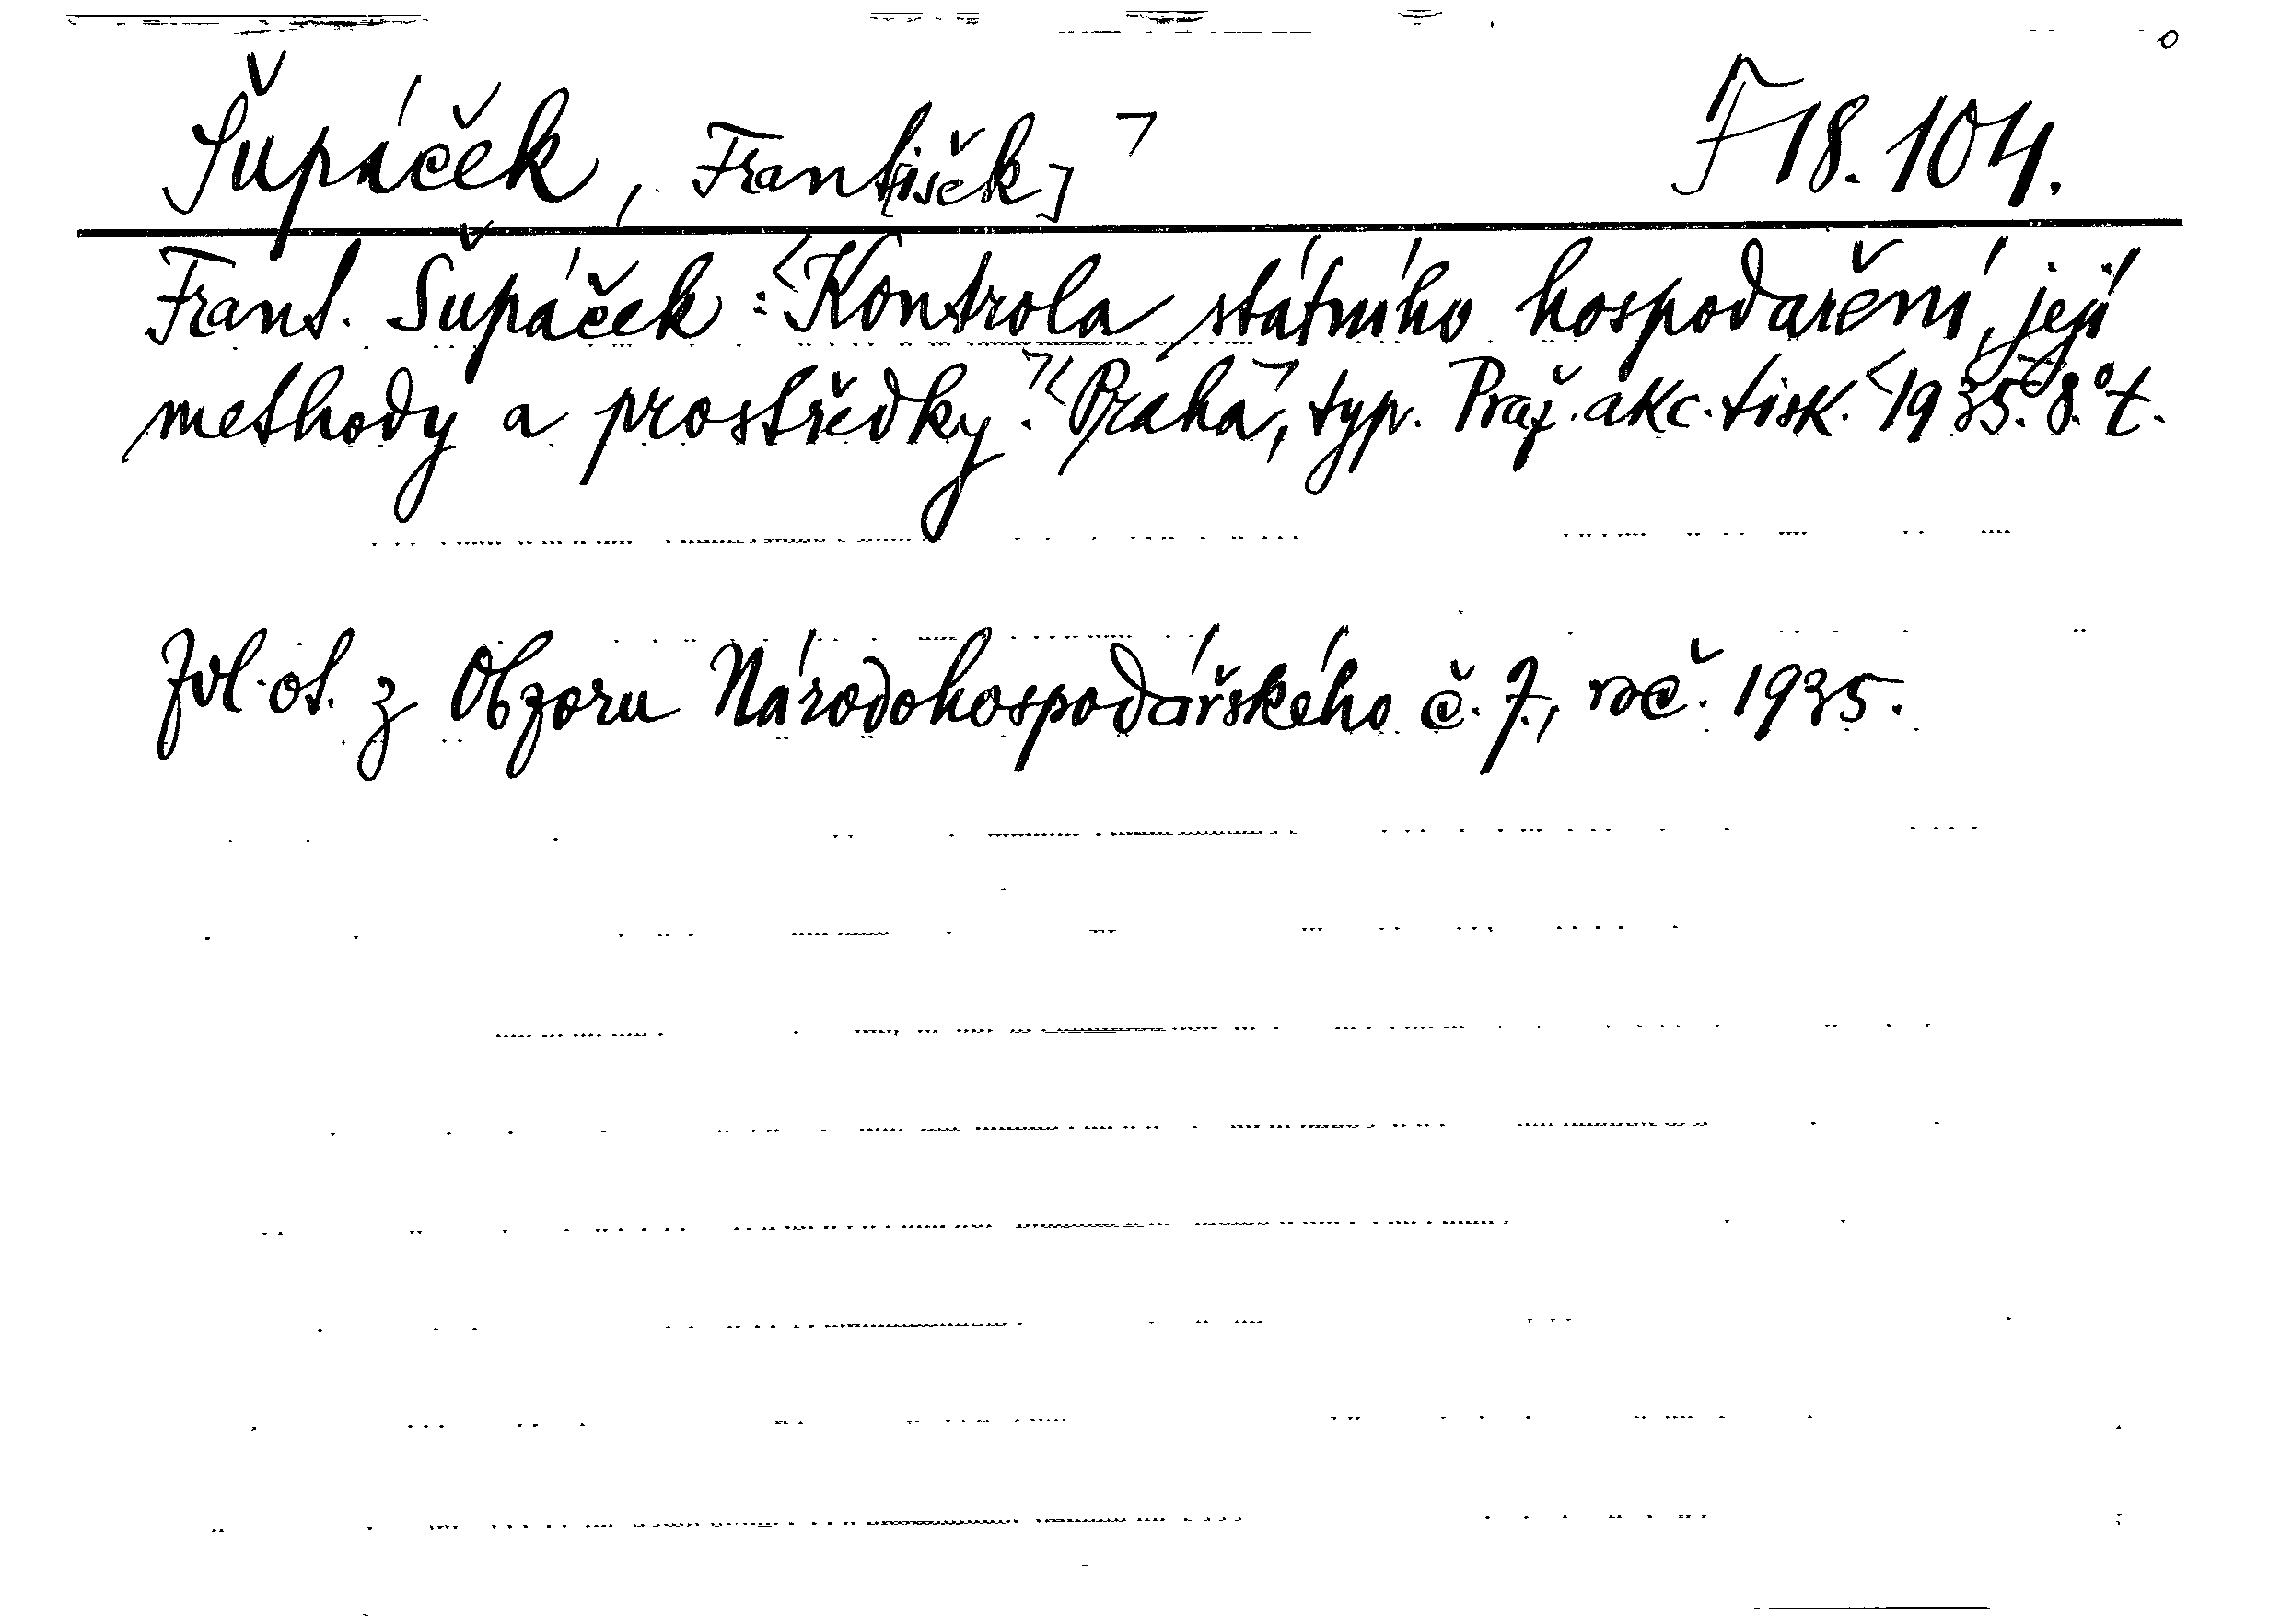 Šupáček, Frant[išek] F 18.104.
Frant. Šupáček: Kontrola státního hospodaření, její
methody a prostředky. Praha, typ. Praž. akc. tisk. 1935. 8° t.
Zvl. ot. z Obzoru Národohospodářského č. 7., roč. 1935.